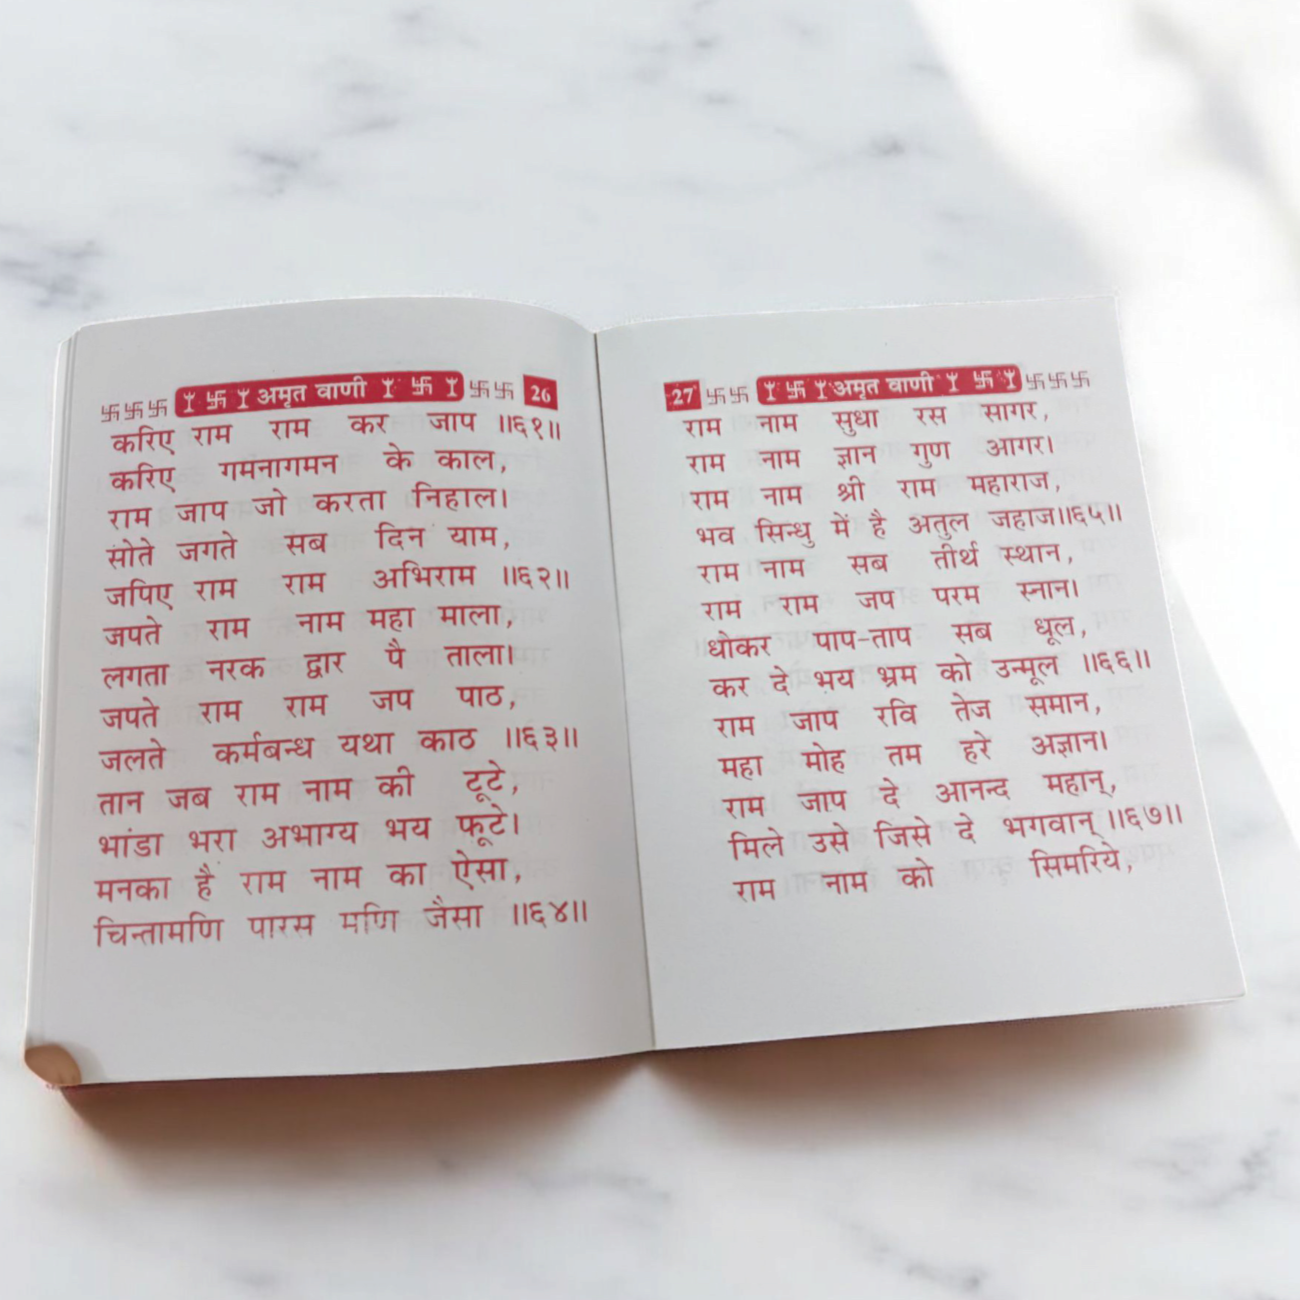 अमृत वाणी 26
करिए राम राम कर जाप ॥६१॥
करिए गमनागमन के काल,
राम जाप जो करता निहाल।
सोते जगते सब दिन याम,
जपिए राम राम अभिराम ॥६२॥
जपते राम नाम महा माला,
लगता नरक द्वार पै ताला।
जपते राम राम जप पाठ,
जलते कर्मबन्ध यथा काठ ॥६३॥
तान जब राम नाम की टूटे,
भांडा भरा अभाग्य भय फूटे।
मनका है राम नाम का ऐसा,
चिन्तामणि पारस मणि जैसा ॥६४॥
27 अमृत वाणी
राम नाम सुधा रस सागर,
राम नाम ज्ञान गुण आगर।
राम नाम श्री राम महाराज,
भव सिन्धु में है अतुल जहाज॥६५॥
राम नाम सब तीर्थ स्थान,
राम राम जप परम स्नान।
धोकर पाप-ताप सब धूल,
कर दे भय भ्रम को उन्मूल ॥६६॥
राम जाप रवि तेज समान,
महा मोह तम हरे अज्ञान।
राम जाप दे आनन्द महान्,
मिले उसे जिसे दे भगवान् ॥६७॥
राम नाम को सिमरिये,